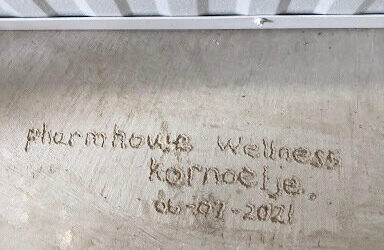 pharmhouse wellness
kornoelje.
06-07-2021